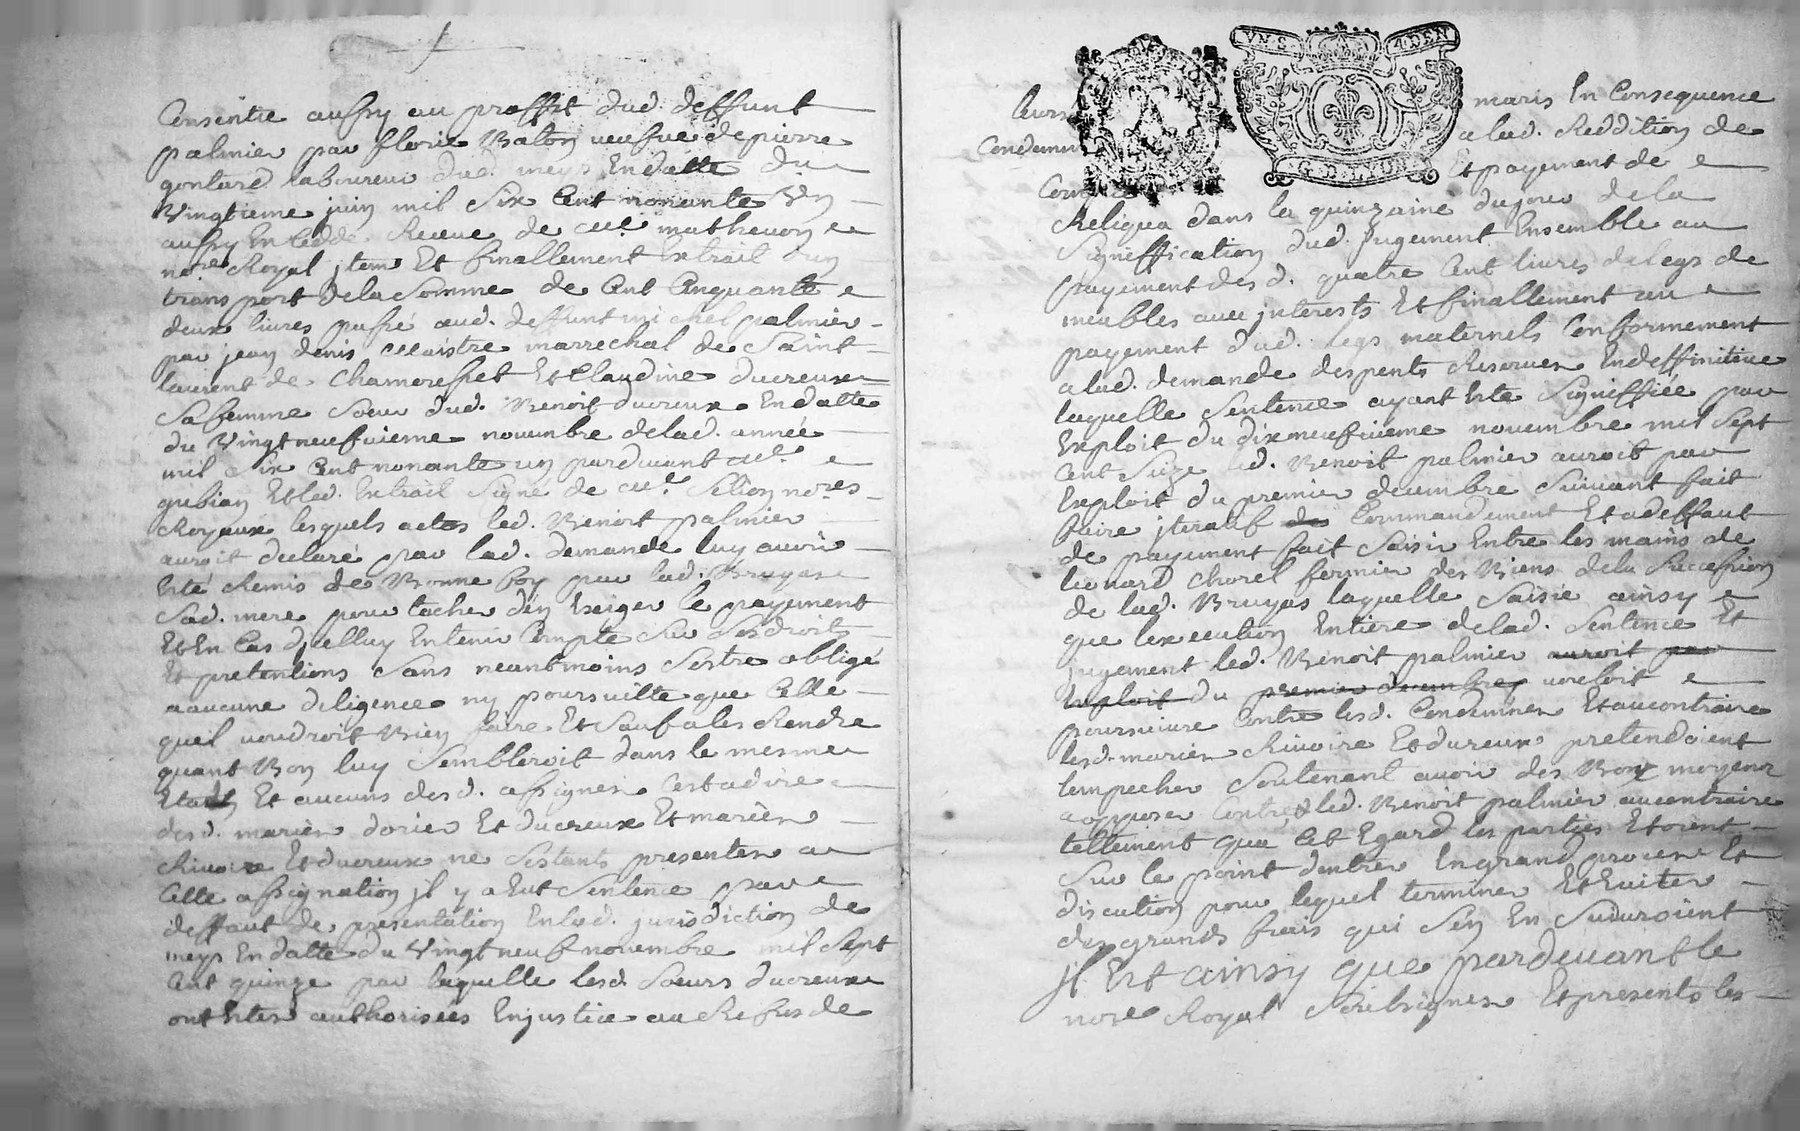 Consentie aussy au proffit dud. deffunt
palmier par florie Baton veufve de pierre
gontard laboureur dud. meys En datte du
Vingtieme juin mil Six Cent nonante Un
aussy En ledde. Receue de me. mathevon
nore Royal jtem Et finallement Extrait d'un
transport de la Somme de Cent Cinquante
deux livres passé aud. deffunt michel palmier
par jean denis maistre marrechal de Saint
laurent de Chamousset Et Claudine ducreux
Sa femme Soeur dud. Benoit ducreux En datte
du Vingt neufvieme novembre de lad. année
mil Six Cent nonante un pardevant me.
gubian Et led. Extrait Signé de me. nores
Royaux lesquels actes led. Benoit palmier
auroit declaré par lad. demande luy avoir
Esté Remis de Bonne foy par lad. Bruyas
Sad. mere pour tacher d'en Exiger le payement
Et En Cas d'jcelluy En tenir Compte Sur Ses droits
Et pretentions Sans neantmoins S'estre obligé
a aucune diligence ny poursuitte que Celle
quel voudroit Bien faire Et Sauf a les Rendre
quant Bon luy Sembleroit dans le mesme
Estat Et aucuns desd. assignes C'est a dire
desd. mariés dorier Et ducreux Et mariés
Rivoire Et ducreux ne S'estants presentes a
Cette assignation jl y a Eut Sentence par
deffaut de presentation En lad. jurisdiction de
meys En datte du Vingt neuf novembre mil Sept
Cent quinze par laquelle lesd. Soeurs ducreux
ont Estes authorisées En justice au Refus de
leurs maris En Consequence
Condemn a lad. Reddition de
Com Et payement de
Reliqua dans la quinzaine du jour de la
Signeffication dud. jugement Ensemble au
payement desd. quatre Cent livres de legs de
meubles avec jnterests Et finallement au
payement dud. legs maternels Conformement
a lad. demande despents Reserves En deffinitive
laquelle Sentence ayant Esté Signeffiée par
Exploit du dix neufvieme novembre mil Sept
Cent Seize led. Benoit palmier auroit par
Exploit du premier decembre Suivant fait
faire jteratif de Commandement Et a deffaut
de payement fait Saisir Entre les mains de
leonard Chorel fermier des Biens de la Succession
de lad. Bruyas laquelle Saisie ainsy
que l'execution Entiere de lad. Sentence Et
jugement led. Benoit palmier auroit par
Exploit du premier decembre vouloit
poursuivre Contre lesd. Condemnes Et au contraire
lesd. mariés Rivoire Et ducreux pretendoient
l'empecher Soutenant avoir des Bons moyens
a opposer Contre led. Benoit palmier au contraire
tellement qua Cet Egard les parties Etoient
Sur le point d'entrer En grand proces Et
discution pour lequel terminer Et Eviter
des grands frais qui S'en En Suivroient
jl Est ainsy que pardevant le
nore Royal Soubsigner Et presents les